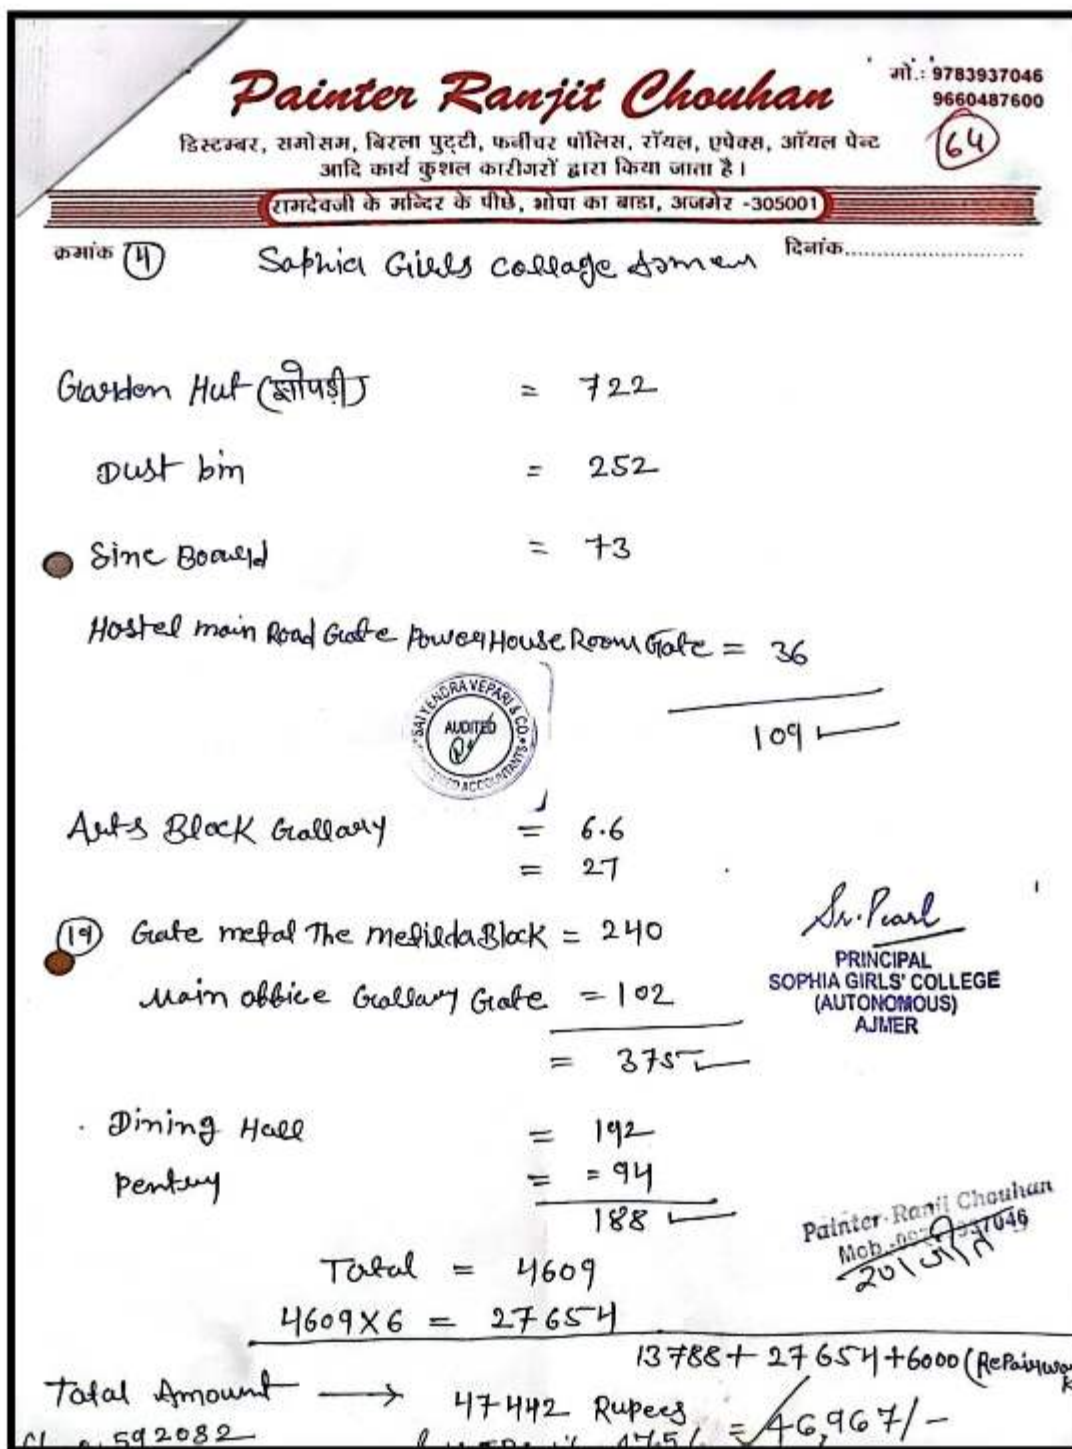 Painter Ranjit Chouhan
मो.: 9783937046
9660487600
64
डिस्टम्बर, समोसम, बिरला पुट्टी, फर्नीचर पॉलिस, रॉयल, एपेक्स, ऑयल पेन्ट
आदि कार्य कुशल कारीगरों द्वारा किया जाता है।
रामदेवजी के मन्दिर के पीछे, भोपा का बाडा, अजमेर -305001
क्रमांक 4 Sophia Girls collage दिनांक..............................
Garden Hut (झोपड़ी) = 722
Dust bin = 252
Sine Board = 73
Hostel main Road Gate Power House Room Gate = 36
109
SATYENDRA VEPARI & CO.
AUDITED
ACCOUNTANTS
Arts Block Gallary = 6.6
= 27
19 Gate metal The Block = 240
Main obbice Gallary Gate = 102
= 375
Sr. Pearl
PRINCIPAL
SOPHIA GIRLS' COLLEGE
(AUTONOMOUS)
AJMER
Dining Hall = 192
Pentry = = 94
188
Painter-Ranjit Chouhan
Mob.
Total = 4609
4609X6 = 27654
13788+27654+6000 (Repair
Total Amount → 47442 Rupees
592082
= 46,967/-